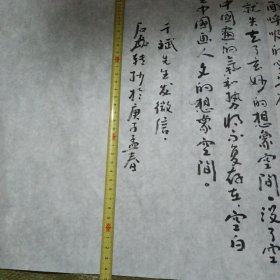 就失去了玄妙的想象空间。没了空
中国画的气和势将不复存在，空白
中国画人文的想象空间。
先生发微信。
转抄于庚子孟春